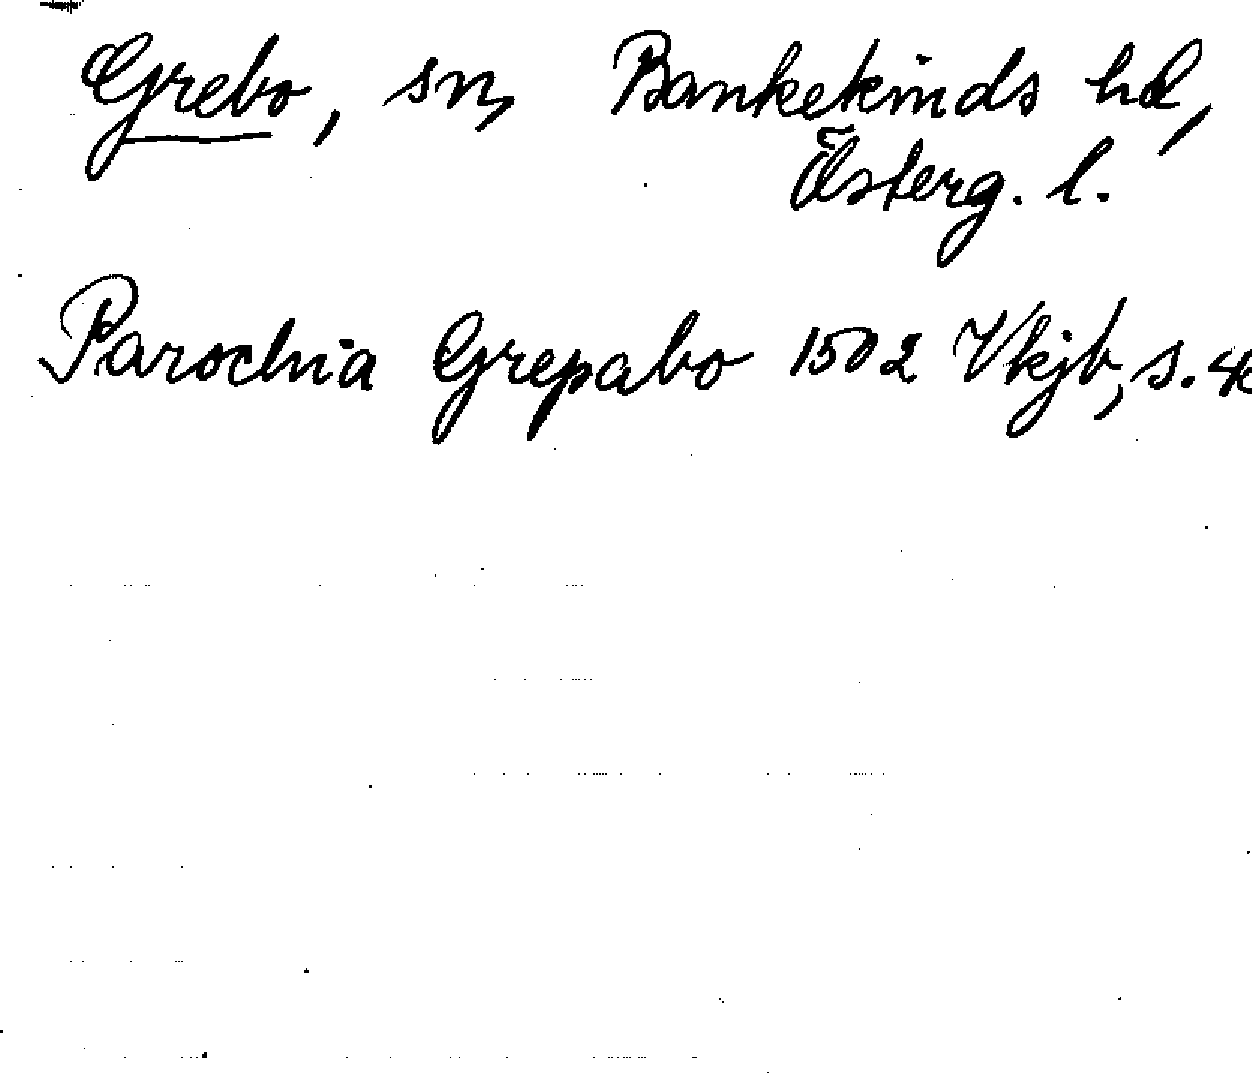 Grebo, sn, Bankekinds hd,
Österg. l.
Parochia Grepabo 1502 Vkjb, s. 4